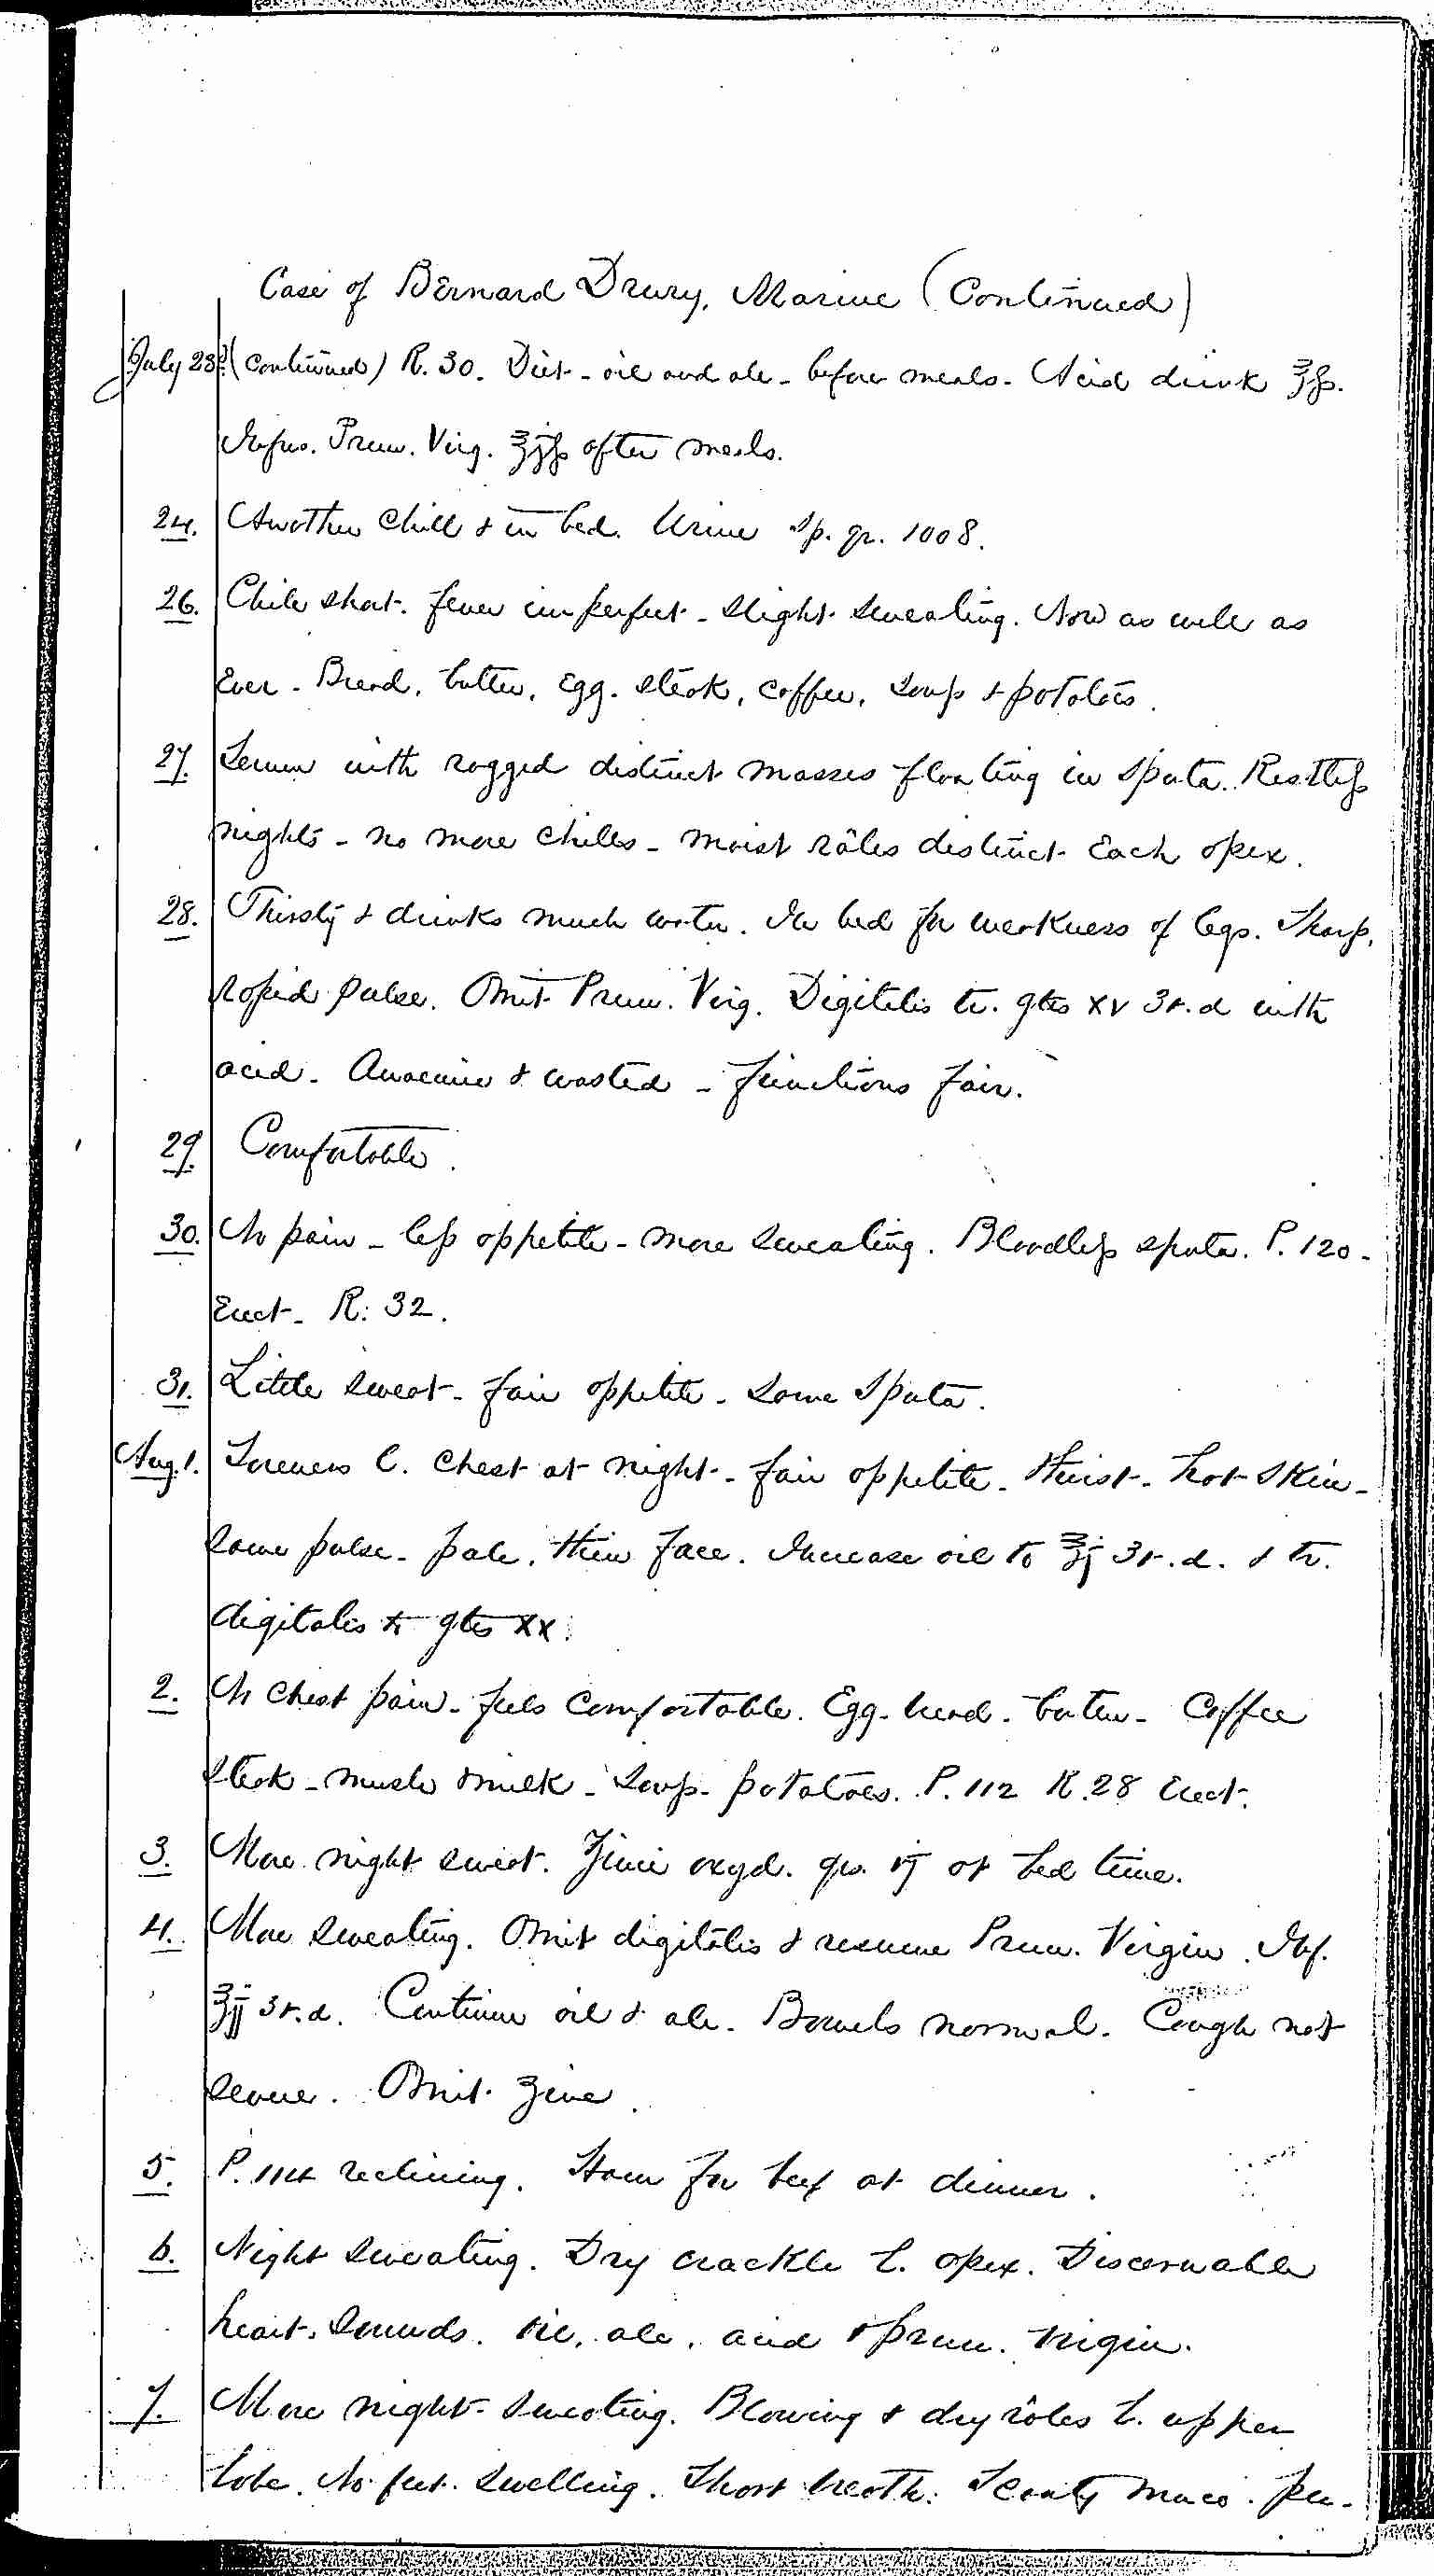 Case of Bernard Drury, Marine (Continued)
July 23d (continued) R. 30. Diet - oil and ale - before meals. Acid drink ℥ss.
Infus. Prun. Virg. ℥jss after meals.
24. Another chill & in bed. Urine Sp. gr. 1008.
26. Chill short. fever imperfect - slight sweating. Now as well as
Ever - Bread, butter, Egg. steak, coffee, soup & potatoes.
27. Serum with ragged distinct masses floating in sputa. Restless
nights - no more chills - moist râles distinct Each apex.
28. Thirsty & drinks much water. In bed for weakness of legs. Sharp,
rapid pulse. Omit Prun. Virg. Digitalis tr. gtts xv 3t.d with
acid. Anaemic & wasted - functions fair.
29. Comfortable.
30. No pain - less appetite - more sweating. Bloodless sputa. P. 120 -
Erect - R. 32.
31. Little sweat - fair appetite - some sputa.
Aug. 1. Soreness C. chest at night - fair appetite - thirst - hot skin -
same pulse - pale, thin face. Increase oil to ℥j 3t.d. & tr.
digitalis to gtts xx.
2. No chest pain - feels comfortable. Egg - bread - butter - Coffee
steak - mush & milk - soup - potatoes. P. 112 R. 28 Erect.
3. More night sweat. Zinci oxyd. grs. vj at bed time.
4. More sweating. Omit digitalis & resume Prun. Virgin. Inf.
℥ij 3t.d. Continue oil & ale. Bowels normal. Cough not
severe. Omit zinc.
5. P. 114 reclining. Ham for beef at dinner.
6. Night sweating. Dry crackle L. apex. Discernable
heart. sounds. Oil, ale, acid & prun. Virgin.
7. More night-sweating. Blowing & dry râles L. upper
lobe. No feet swelling. Short breath. Scanty muco. pu-